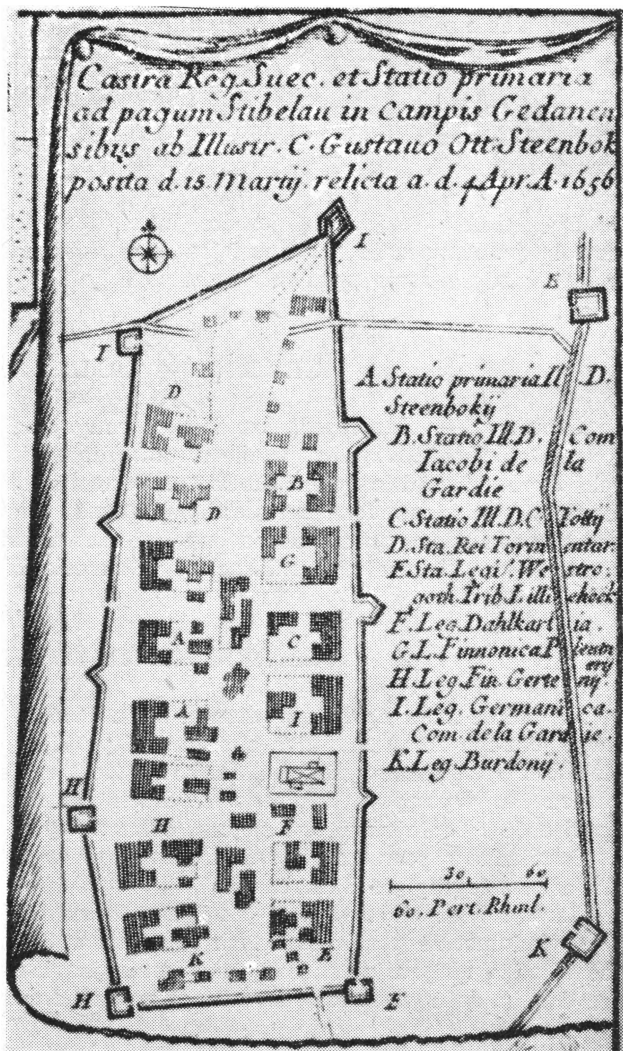 Castra Reg. Suec. et Statio primaria
ad pagum Stibelau in campis Gedanen
sibus ab Illustr. C. Gustavo Ott. Steenbok
posita d. 15. Martij. relicta a. d. 4 Apr. A. 1656
I
E
I
D
A. Statio primaria Ill. D.
Steenbokij
B. Statio Ill. D. Com
Iacobi de la
Gardie
C. Statio Ill. D. C. Tottij
D. Sta. Rei Tormentar.
E. Sta. Legi. Westro
goth. Trib. Lilliehook
F. Leg. Dahlkarlia.
G. L. Finnonica
H. Leg. Fin.
I. Leg. Germanica.
Com. de la Gardie.
K. Leg. Burdonij.
B
D
G
A
C
A
I
H
H
F
30 60
60. Pert. Rhinl.
K
E
K
H
F